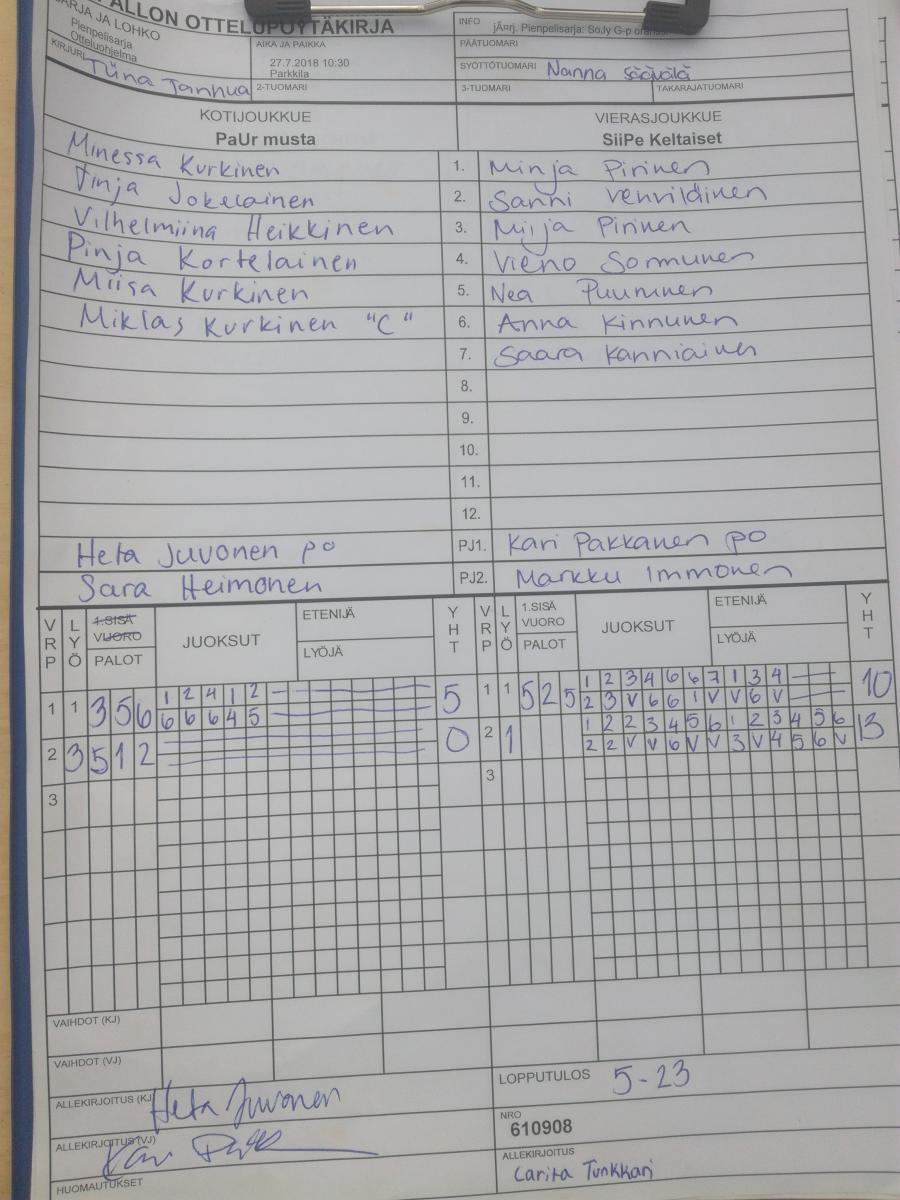 PALLON OTTELUPÖYTÄKIRJA
SARJA JA LOHKO
Pienpelisarja
Otteluohjelma
AIKA JA PAIKKA
27.7.2018 10:30
Parkkila
INFO
Pienpelisarja: SoJy G-p
PÄÄTUOMARI
KIRJURI
Tanhua
SYÖTTÖTUOMARI Nanna
2-TUOMARI
3-TUOMARI
TAKARAJATUOMARI
KOTIJOUKKUE
PaUr musta
VIERASJOUKKUE
SiiPe Keltaiset
Minessa Kurkinen 1. Minja Pirinen
Jokelainen 2. Sanni
Vilhelmiina Heikkinen 3. Mija Pirinen
Pinja Kortelainen 4. Vieno Sormunen
Miisa Kurkinen 5. Nea
Miklas Kurkinen "C" 6. Anna Kinnunen
7. Saara Kanniainen
8.
9.
10.
11.
12.
Heta Juvonen po PJ1. Kari Pakkanen po
Sara Heimonen PJ2. Markku Immonen
VRP LYÖ 1.SISÄ VUORO PALOT JUOKSUT ETENIJÄ LYÖJÄ YHT VRP LYÖ 1.SISÄ VUORO PALOT JUOKSUT ETENIJÄ LYÖJÄ YHT
1 1 3 5 6 1 2 4 1 2 5 1 1 5 2 5 1 2 3 4 6 6 7 1 3 4 10
6 6 6 4 5 2 3 V 6 6 1 V V 6 V
2 3 5 1 2 0 2 1 1 2 2 3 4 5 6 1 2 3 4 5 6 13
2 2 V V 6 V V 3 V 4 5 6 V
3 3
VAIHDOT (KJ)
VAIHDOT (VJ)
ALLEKIRJOITUS (KJ) Heta Juvonen
LOPPUTULOS 5-23
ALLEKIRJOITUS (VJ)
NRO
610908
HUOMAUTUKSET
ALLEKIRJOITUS
Carita Tunkkari